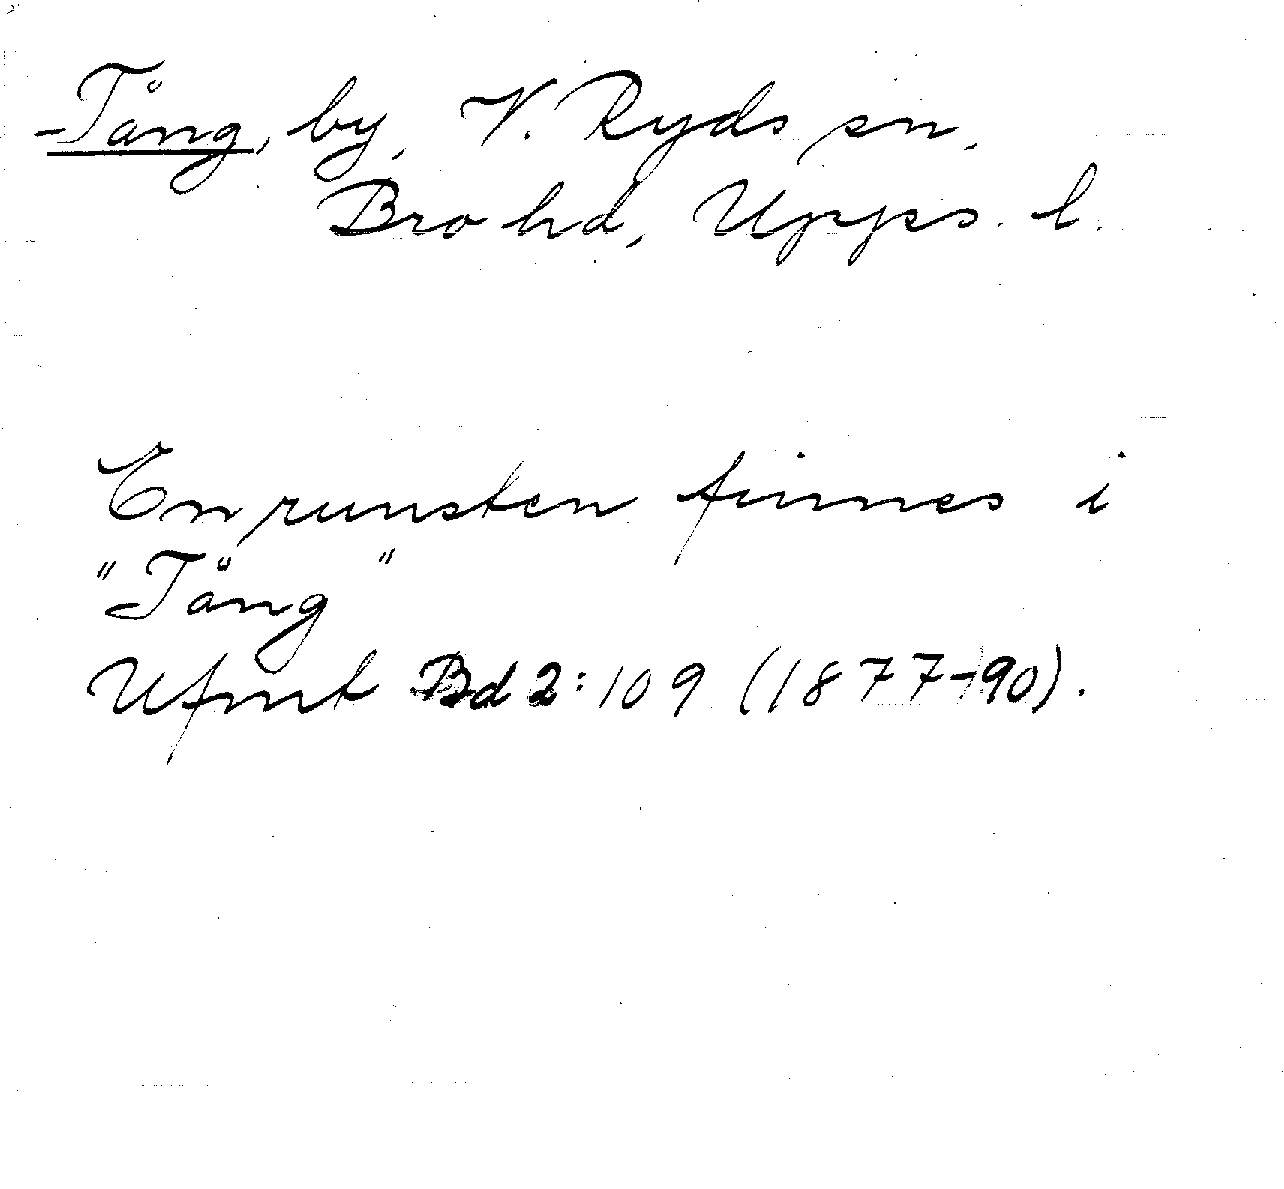 Tång, by, V. Ryds sn,
Bro hd, Upps. l.
En runsten finnes i
"Tång"
Ufmt Bd 2:109 (1877-90).